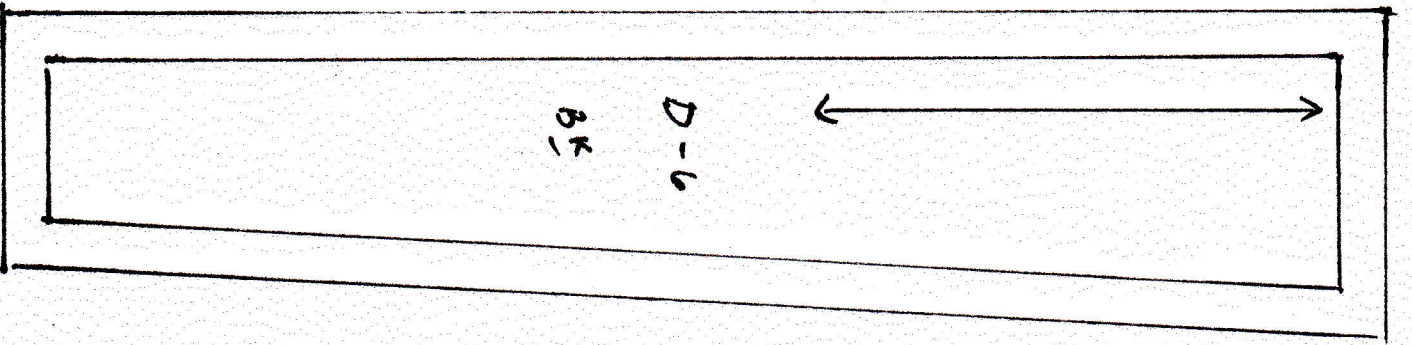 D-6
BK